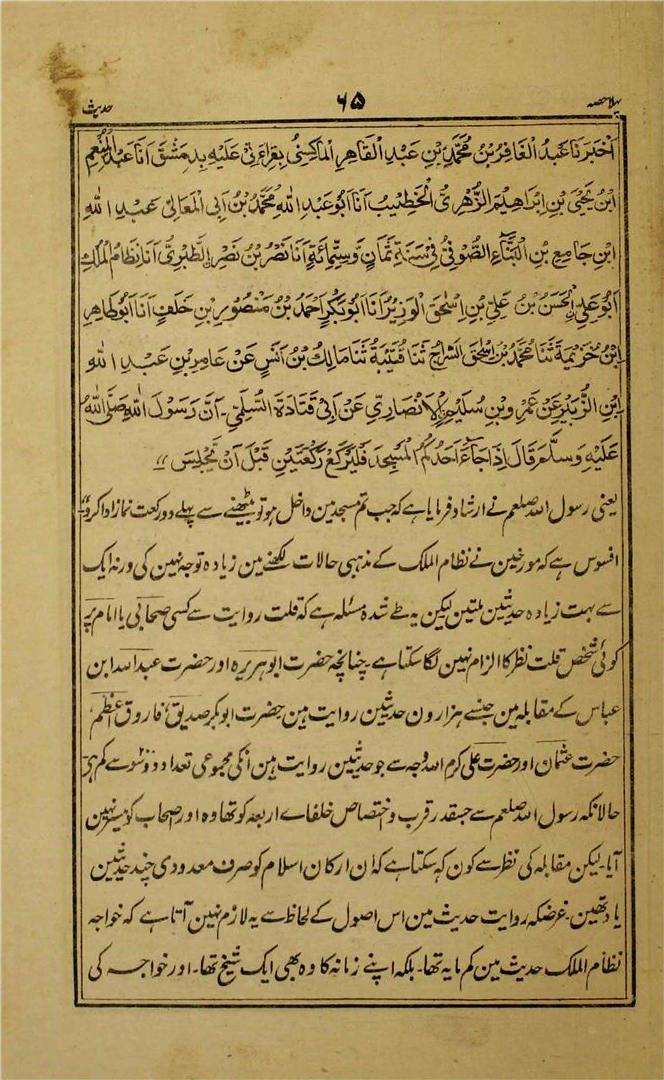 پہلا حصہ
۶۵
حدیث
اَخْبَرَنَا عَبْدُ الْغَافِرِ بْنُ مُحَمَّدِ بْنِ عَبْدِ الْقَاهِرِ الْمَاكِسِیْنِیُّ بِقِرَاءَتِیْ عَلَیْهِ بِدِمَشْقَ اَنَا عَبْدُ الْمُنْعِمِ
ابْنُ یَحْیَی بْنِ اِبْرَاهِیْمَ الزُّهْرِیُّ الْخَطِیْبُ اَنَا اَبُوْ عَبْدِ اللّٰهِ مُحَمَّدُ بْنُ اَبِی الْمَعَالِیْ عَبْدِ اللّٰهِ
ابْنِ جَامِعِ بْنِ الْبَنَّاءِ الصُّوْفِیُّ فِیْ سَنَةِ ثَمَانٍ وَّسِتِّمِائَةٍ اَنَا نَصْرُ بْنُ نَصْرِ الطَّبَرِیُّ اَنَا نِظَامُ الْمُلْكِ
اَبُوْ عَلِیٍّ الْحَسَنُ بْنُ عَلِیِّ بْنِ اِسْحٰقَ الْوَزِیْرُ اَنَا اَبُوْ بَكْرٍ اَحْمَدُ بْنُ مَنْصُوْرِ بْنِ خَلَفٍ اَنَا اَبُوْ طَاهِرِ
ابْنُ خُزَیْمَةَ ثَنَا مُحَمَّدُ بْنُ اِسْحٰقَ السَّرَّاجُ ثَنَا قُتَیْبَةُ ثَنَا مَالِكُ بْنُ اَنَسٍ عَنْ عَامِرِ بْنِ عَبْدِ اللّٰهِ
ابْنِ الزُّبَیْرِ عَنْ عَمْرِو بْنِ سُلَیْمِ الْاَنْصَارِیِّ عَنْ اَبِیْ قَتَادَةَ السُّلَمِیِّ۔ اَنَّ رَسُوْلَ اللّٰهِ صَلَّی اللّٰهُ
عَلَیْهِ وَسَلَّمَ قَالَ اِذَا جَآءَ اَحَدُكُمُ الْمَسْجِدَ فَلْیَرْكَعْ رَكْعَتَیْنِ قَبْلَ اَنْ یَّجْلِسَ ؍؍
یعنی رسول اللہ صلعم نے ارشاد فرمایا ہے کہ جب تم مسجد مین داخل ہو تو بیٹھنے سے پہلے دو رکعت نماز ادا کرو؍؍
افسوس ہے کہ مورخین نے نظام الملک کے مذہبی حالات لکھنے مین زیادہ توجہ نہین کی ورنہ ایک
سے بہت زیادہ حدیثین ملتین لیکن یہ طے شدہ مسئلہ ہے کہ قلت روایت سے کسی صحابی یا امام پر
کوئی شخص قلت نظر کا الزام نہین لگا سکتا ہے۔ چنانچہ حضرت ابوہریرہ اور حضرت عبد اللہ ابن
عباس کے مقابلہ مین جنسے ہزارون حدیثین روایت ہین حضرت ابوبکر صدیق، فاروق اعظم،
حضرت عثمان اور حضرت علی کرم اللہ وجہ سے جو حدیثین روایت ہین انکی مجموعی تعداد دو سو سے کم ہی
حالانکہ رسول اللہ صلعم سے جسقدر قرب و اختصاص خلفاے اربعہ کو تھا وہ اور اصحاب کو میسر نہین
آیا۔ لیکن مقابلہ کی نظر سے کون کہ سکتا ہے کہ ان ارکان اسلام کو صرف معدودی چند حدیثین
یاد تھین۔ غرضکہ روایت حدیث مین اس اصول کے لحاظ سے یہ لازم نہین آتا ہے کہ خواجہ
نظام الملک حدیث مین کم مایہ تھا۔ بلکہ اپنے زمانہ کا وہ بھی ایک شیخ تھا۔ اور خواجہ کی